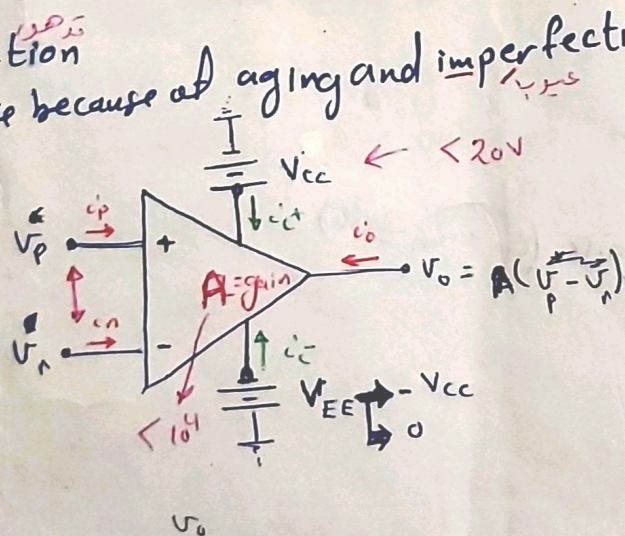 تدهور
tion
because of aging and imperfecti
عيوب
Vcc ← < 20V
ic+
Vp ip + io Vo = A(Vp - Vn)
A=gain
Vn in - ic-
VEE → - Vcc
→ 0
< 10⁴
Vo